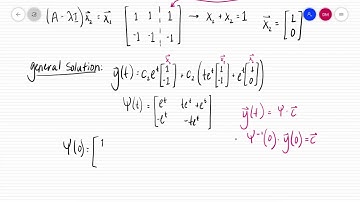 (A - λI) x⃗₂ = x⃗₁ [1 1 | 1; -1 -1 | -1] → x₁ + x₂ = 1 x⃗₂ = [1; 0]
general solution: y⃗(t) = c₁eᵗ[1; -1] + c₂(teᵗ[1; -1] + eᵗ[1; 0])
Ψ(t) = [eᵗ teᵗ+eᵗ; -eᵗ -teᵗ]
y⃗(t) = Ψ · c⃗
Ψ⁻¹(0) · y⃗(0) = c⃗
Ψ(0) = [1